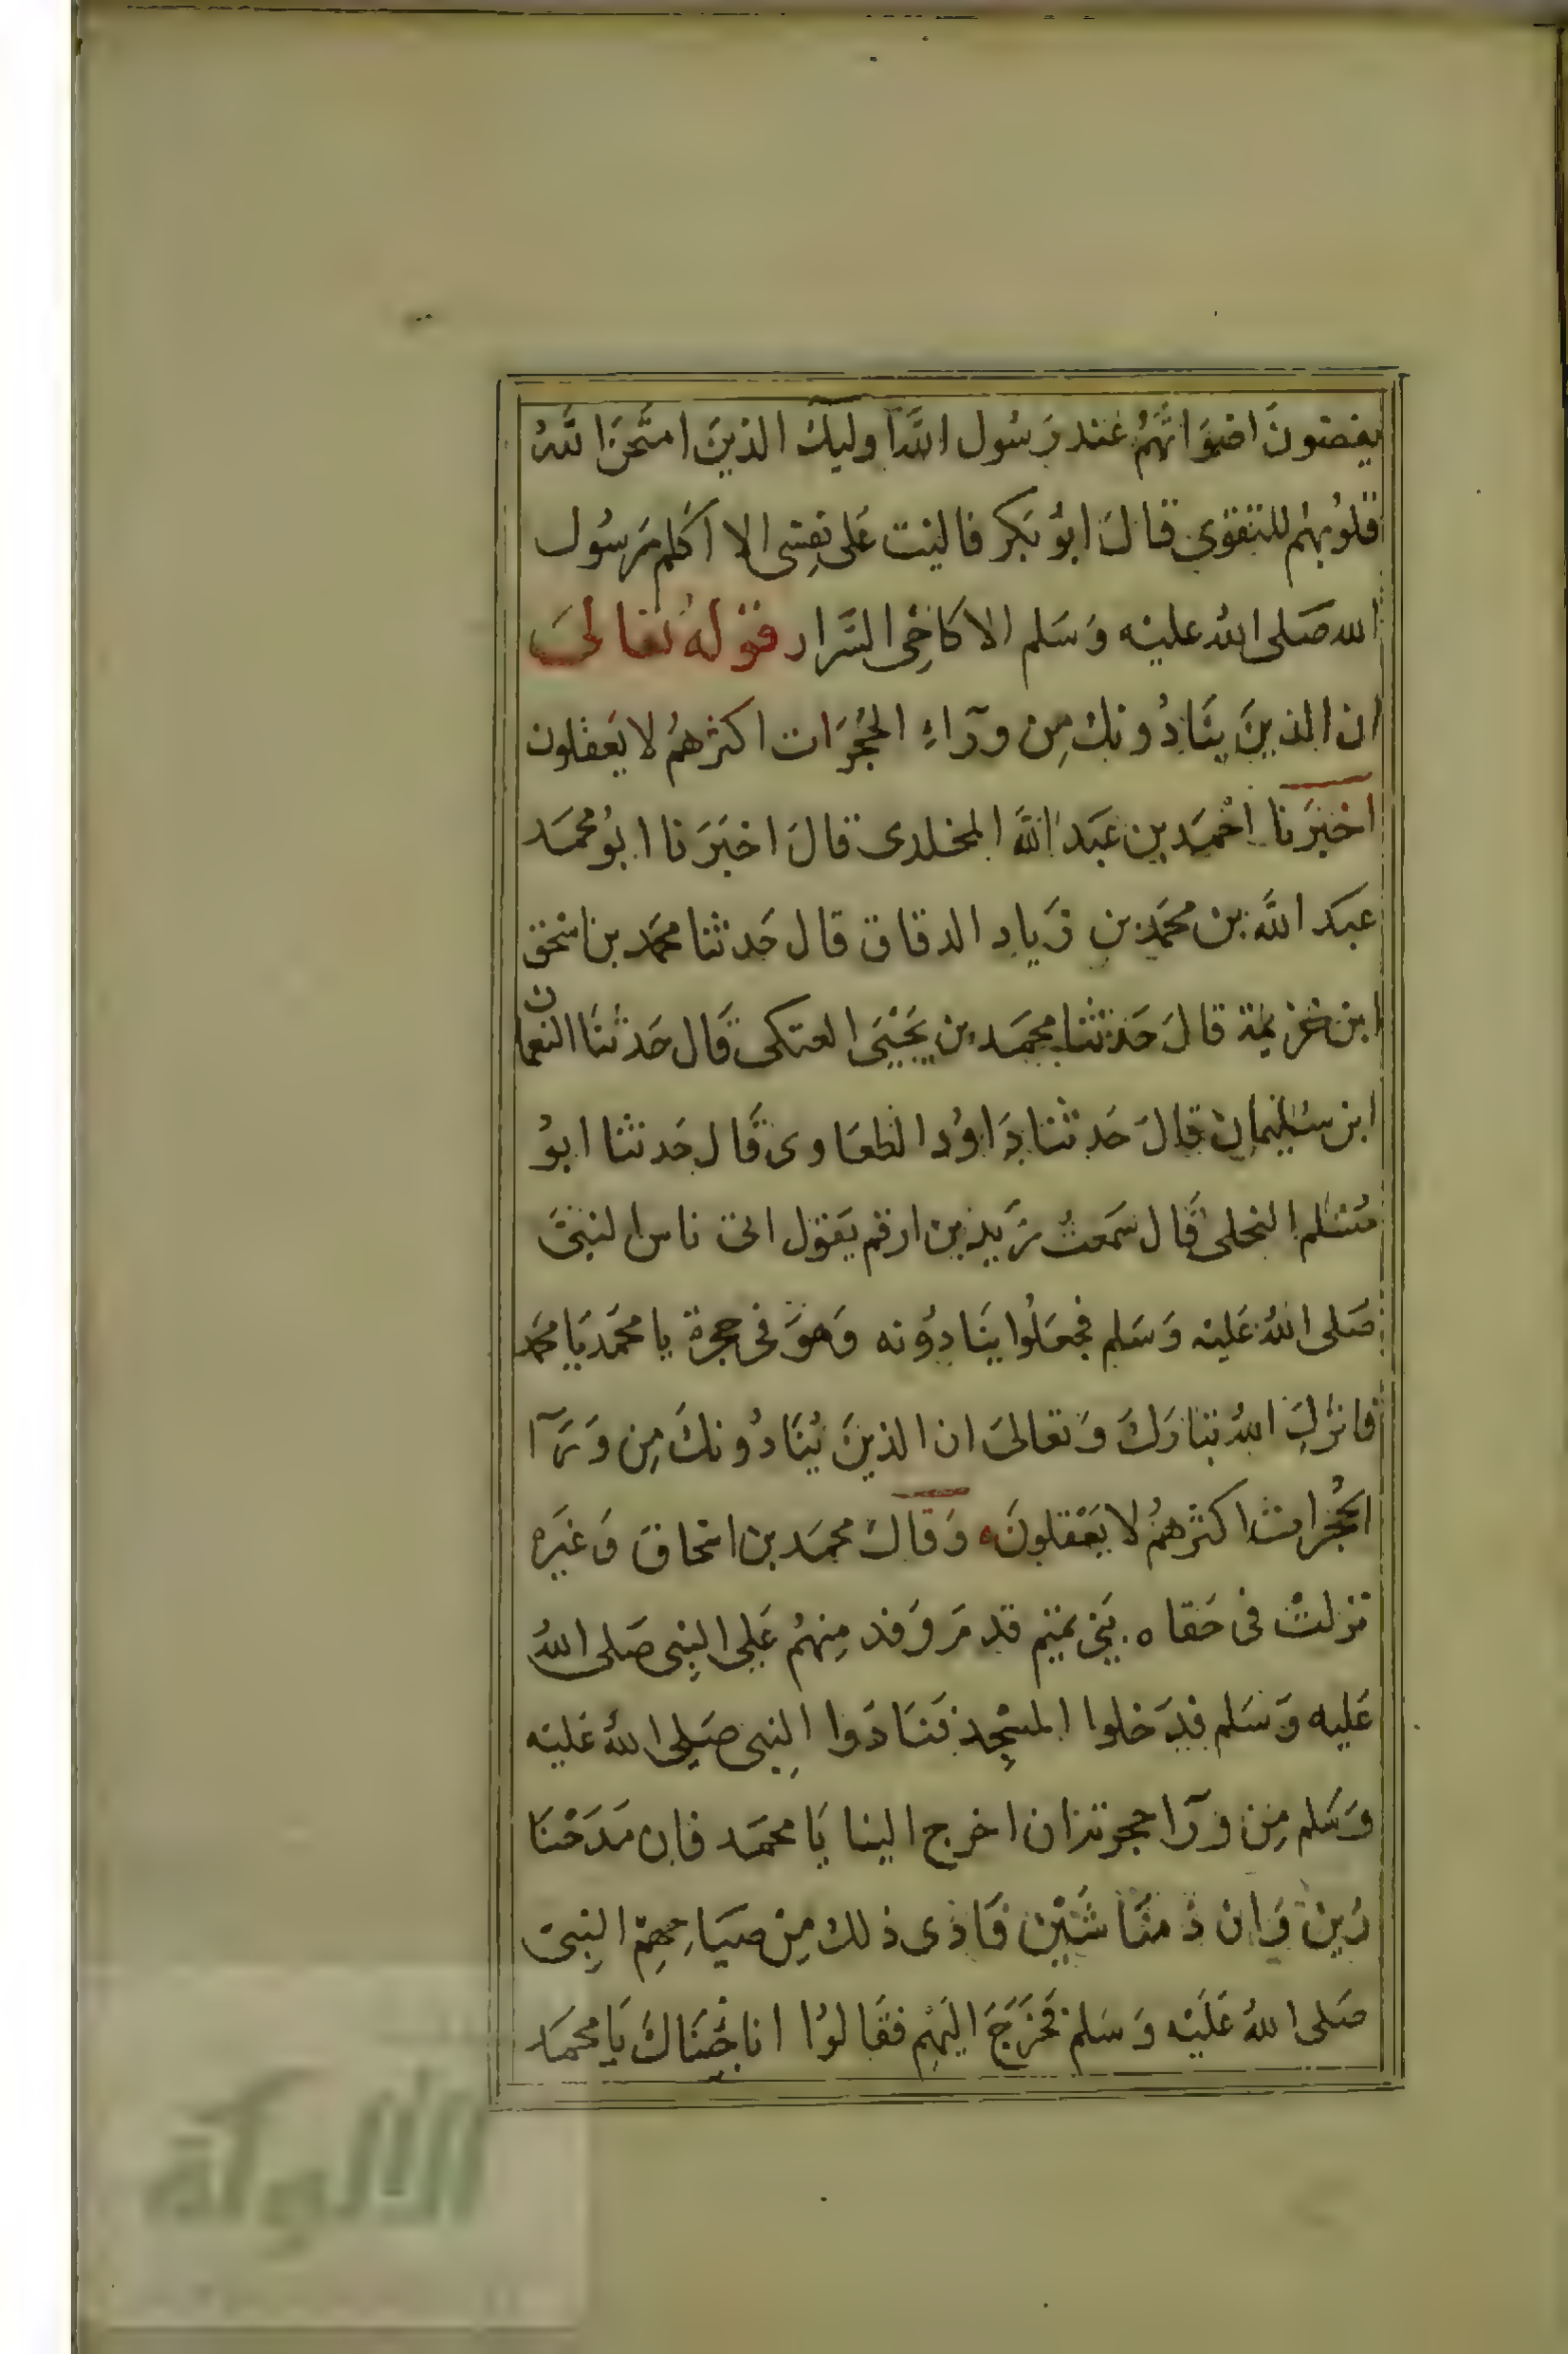 يغضون اصواتهم عند رسول الله اوليك الذين امتحن الله
قلوبهم للتقوى قال ابو بكر فاليت على نفسى الا اكلم رسول
الله صلى الله عليه وسلم الا كاخى السرار قوله تعالى
ان الذين ينادونك من ورآء الحجرات اكثرهم لا يعقلون
اخبرنا احمد بن عبد الله المخلدى قال اخبرنا ابو محمد
عبد الله بن محمد بن زياد الدقاق قال حدثنا محمد بن اسحق
ابن خزيمة قال حدثنا محمد بن يحيى العتكى قال حدثنا النعمان
ابن سليمان قال حدثنا داود الطعاوى قال حدثنا ابو
مسلم البجلى قال سمعت زيد بن ارقم يقول اتى ناس النبى
صلى الله عليه وسلم فجعلوا ينادونه وهو فى حجرة يا محمد يا محمد
فانزل الله تبارك وتعالى ان الذين ينادونك من ورآ
الحجرات اكثرهم لا يعقلون وقال محمد بن اسحاق وغيره
نزلت فى حقاه بنى تميم قدم وفد منهم على النبى صلى الله
عليه وسلم فدخلوا المسجد فنادوا النبى صلى الله عليه
وسلم من ورآ حجرته ان اخرج الينا يا محمد فان مدحنا
زين وان ذمنا شين فاذى ذلك من صياحهم النبى
صلى الله عليه وسلم فخرج اليهم فقالوا انا جئناك يا محمد
الألوكة